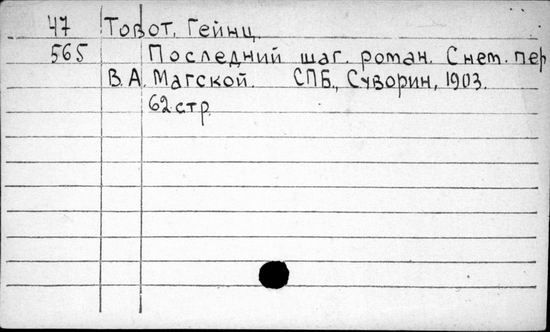 47 Товот, Гейнц
565 Последний шаг. роман. С нем. пер
В.А. Магской. СПБ., Суворин, 1903.
62 стр.